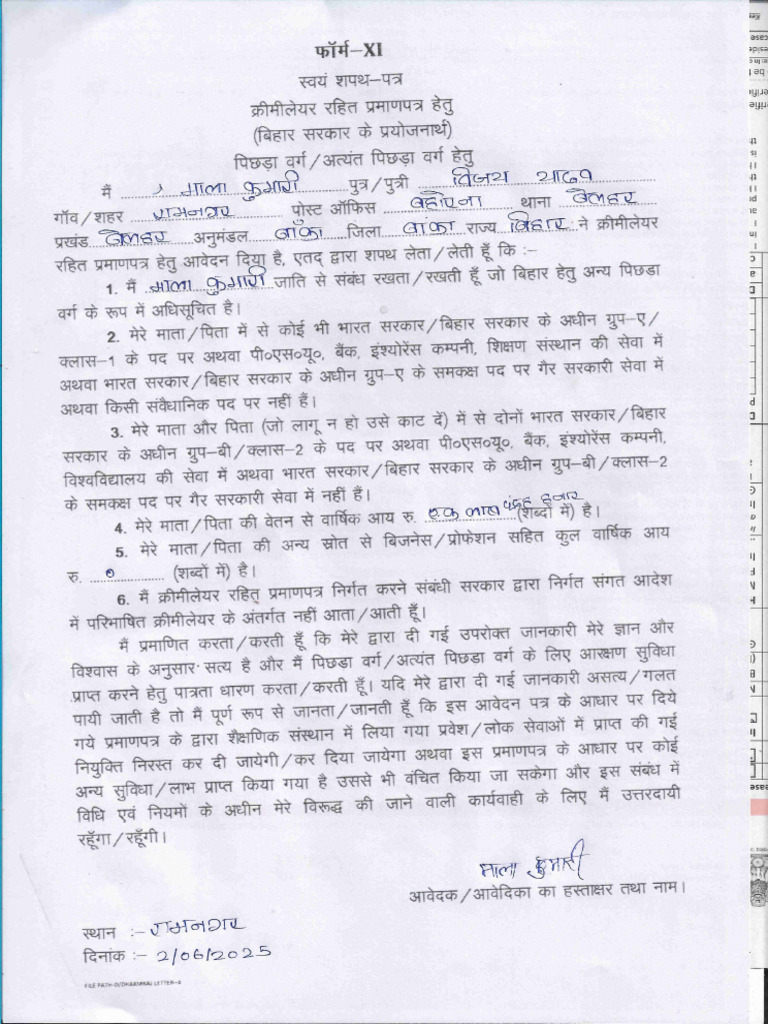 फॉर्म–XI
स्वयं शपथ–पत्र
क्रीमीलेयर रहित प्रमाणपत्र हेतु
(बिहार सरकार के प्रयोजनार्थ)
पिछड़ा वर्ग/अत्यंत पिछड़ा वर्ग हेतु
में माला कुमारी पुत्र/पुत्री विजय यादव
गॉव/शहर रामनगर पोस्ट ऑफिस बहोरना थाना बेलहर
प्रखंड बेलहर अनुमंडल बाँका जिला बांका राज्य बिहार ने क्रीमीलेयर
रहित प्रमाणपत्र हेतु आवेदन दिया है, एतद् द्वारा शपथ लेता/लेती हूँ कि :–
1. मैं माला कुमारी जाति से संबंध रखता/रखती हूँ जो बिहार हेतु अन्य पिछडा
वर्ग के रूप में अधिसूचित है।
2. मेरे माता/पिता में से कोई भी भारत सरकार/बिहार सरकार के अधीन ग्रुप–ए/
क्लास–1 के पद पर अथवा पी०एस०यू०, बैंक, इंश्योरेंस कम्पनी, शिक्षण संस्थान की सेवा में
अथवा भारत सरकार/बिहार सरकार के अधीन ग्रुप–ए के समकक्ष पद पर गैर सरकारी सेवा में
अथवा किसी संवैधानिक पद पर नहीं हैं।
3. मेरे माता और पिता (जो लागू न हो उसे काट दें) में से दोनों भारत सरकार/बिहार
सरकार के अधीन ग्रुप–बी/क्लास–2 के पद पर अथवा पी०एस०यू०, बैंक, इंश्योरेंस कम्पनी,
विश्वविद्यालय की सेवा में अथवा भारत सरकार/बिहार सरकार के अधीन ग्रुप–बी/क्लास–2
के समकक्ष पद पर गैर सरकारी सेवा में नहीं हैं।
4. मेरे माता/पिता की वेतन से वार्षिक आय रु. एक लाख पंद्रह हजार (शब्दों में) है।
5. मेरे माता/पिता की अन्य स्रोत से बिजनेस/प्रोफेशन सहित कुल वार्षिक आय
रु. 0 (शब्दों में) है।
6. मैं क्रीमीलेयर रहित् प्रमाणपत्र निर्गत करने संबंधी सरकार द्वारा निर्गत संगत आदेश
में परिभाषित क्रीमीलेयर के अंतर्गत नहीं आता/आती हूँ।
मैं प्रमाणित करता/करती हूँ कि मेरे द्वारा दी गई उपरोक्त जानकारी मेरे ज्ञान और
विश्वास के अनुसार सत्य है और मैं पिछडा वर्ग/अत्यंत पिछडा वर्ग के लिए आरक्षण सुविधा
प्राप्त करने हेतु पात्रता धारण करता/करती हूँ। यदि मेरे द्वारा दी गई जानकारी असत्य/गलत
पायी जाती है तो मैं पूर्ण रूप से जानता/जानती हूँ कि इस आवेदन पत्र के आधार पर दिये
गये प्रमाणपत्र के द्वारा शैक्षणिक संस्थान में लिया गया प्रवेश/लोक सेवाओं में प्राप्त की गई
नियुक्ति निरस्त कर दी जायेगी/कर दिया जायेगा अथवा इस प्रमाणपत्र के आधार पर कोई
अन्य सुविधा/लाभ प्राप्त किया गया है उससे भी वंचित किया जा सकेगा और इस संबंध में
विधि एवं नियमों के अधीन मेरे विरूद्ध की जाने वाली कार्यवाही के लिए मैं उत्तरदायी
रहूँगा/रहूँगी।
माला कुमारी
आवेदक/आवेदिका का हस्ताक्षर तथा नाम।
स्थान :– रामनगर
दिनांक :– 2/06/2025
FILE PATH-D/DHARMRAJ LETTER-4